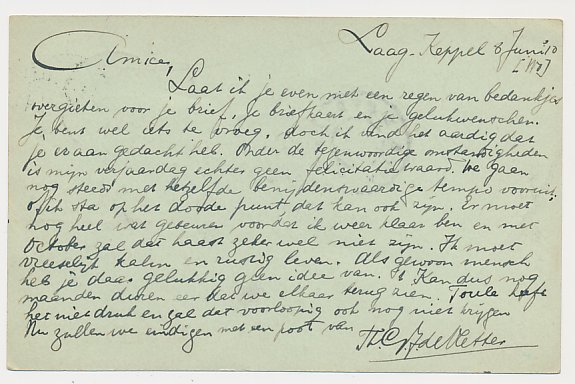 Laag-Keppel 8 Juni 10
Amice,
Laat ik je even met een regen van bedankjes
overgieten voor je brief, je briefkaart en je gelukwenschen.
Je bent wel iets te vroeg, doch ik vind het aardig dat
je er aan gedacht heb. Onder de tegenwoordige omstandigheden
is mijn verjaardag echter geen felicitatie waard. We gaan
nog steeds met hetzelfde benijdenswaardige tempo vooruit,
of ik sta op het doode punt, dat kan ook zijn. Er moet
nog heel wat gebeuren voordat ik weer klaar ben en met
October zal dat haast zeker wel niet zijn. Ik moet
vreeselijk kalm en rustig leven. Als gewoon mensch
heb je daar gelukkig geen idee van. 't Kan dus nog
maanden duren eer dat we elkaar terug zien. Toule heeft
het niet druk en zal dat voorloopig ook nog niet krijgen
Nu zullen we eindigen met een poot van
Th. C de Vetter